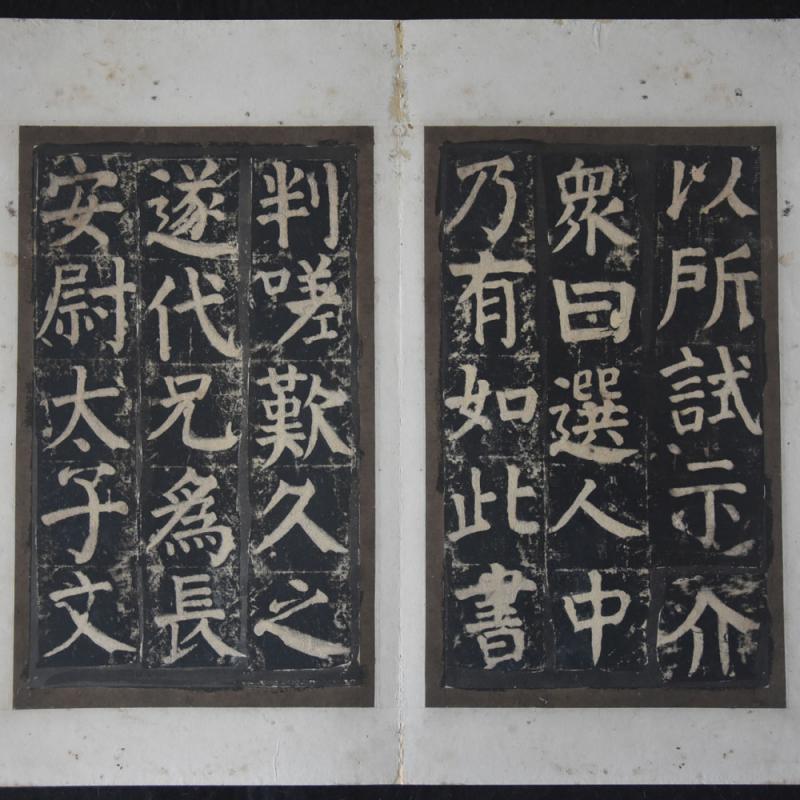 以所試示介
衆曰選人中
乃有如此書
判嗟歎久之
遂代兄為長
安尉太子文